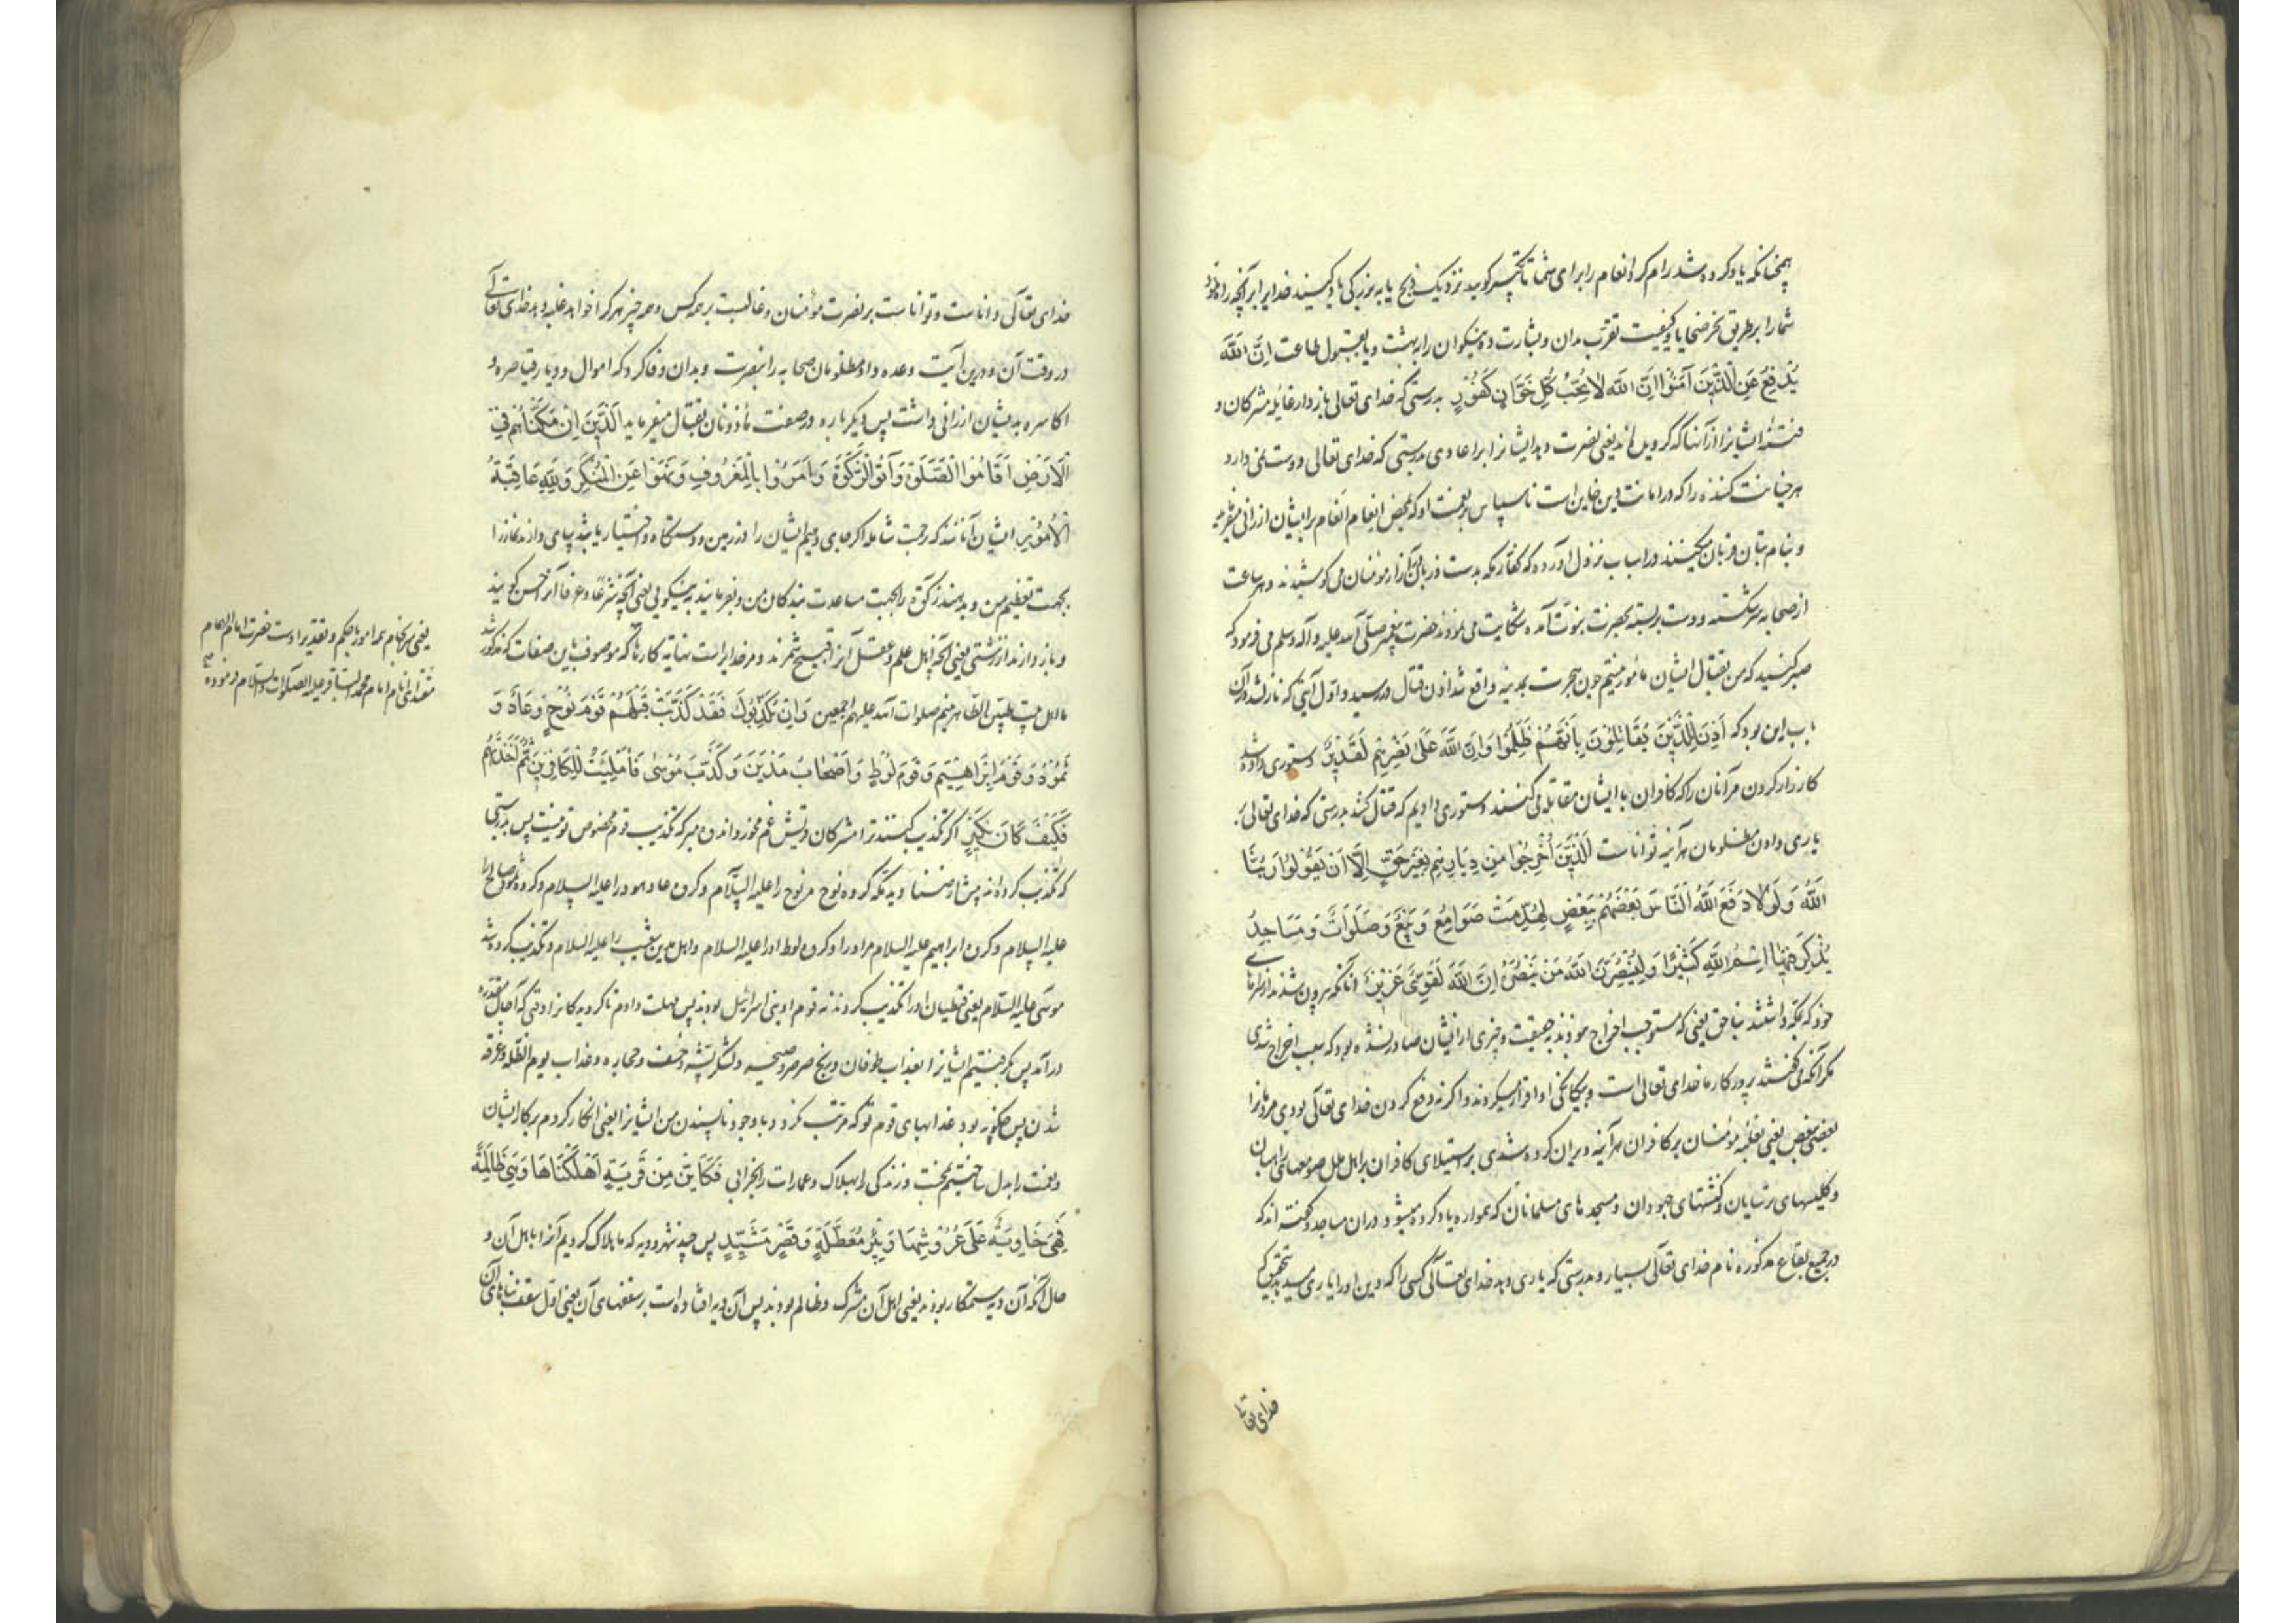 همچنانکه یاد کرده شد رام کرد انعام را برای شما تا تکبیر گویید نزدیک ذبح یا به بزرگی یاد کنید خدایرا بر آنچه راه نمود
شما را بر طریق نحر ضحایا و کیفیت تقرب بدان و بشارت ده نیکوان را به بهشت و یا بقبول طاعت اِنَّ اللّٰهَ
یُدٰفِعُ عَنِ الَّذِینَ آمَنُوا اِنَّ اللّٰهَ لَا یُحِبُّ کُلَّ خَوَّانٍ کَفُوْرٍ بدرستی که خدای تعالی باز دارد غایله مشرکان و
فتنه ایشانرا از آنها که گرویده‌اند یعنی نصرت دهد ایشانرا بر اعادی بدرستی که خدای تعالی دوست نمی دارد
هر خیانت کننده را که در امانت دین خاین است ناسپاس بر نعمت او که محض انعام انعام بر ایشان ارزانی میفرماید
و بنام بتان قربان میکنند در اسباب نزول آورده که کفار مکه بدست و زبان در آزار مومنان می کوشیدند و هر ساعت
از صحابه سر شکسته و دست بر بسته بحضرت نبوت آمده شکایت می نمودند حضرت پیغمبر صلی الله علیه و آله وسلم می فرمود که
صبر کنید که من بقتال ایشان مامور نیستم چون هجرت بمدینه واقع شد اذن قتال در رسید و اول آیتی که نازل شد در آن
باب این بود که اُذِنَ لِلَّذِینَ یُقَاتَلُونَ بِاَنَّهُمْ ظُلِمُوا وَاِنَّ اللّٰهَ عَلٰی نَصْرِهِمْ لَقَدِیْرٌ دستوری داده شد
کارزار کردن مر آنان را که کافران با ایشان مقاتله می کنند دستوری دادیم که قتال کنند بدرستی که خدای تعالی بر
یاری دادن مظلومان هر آینه تواناست اَلَّذِیْنَ اُخْرِجُوا مِنْ دِیَارِهِمْ بِغَیْرِ حَقٍّ اِلَّا اَنْ یَقُوْلُوا رَبُّنَا
اللّٰهُ وَلَوْلَا دَفْعُ اللّٰهِ النَّاسَ بَعْضَهُمْ بِبَعْضٍ لَهُدِّمَتْ صَوَامِعُ وَبِیَعٌ وَصَلَوَاتٌ وَمَسَاجِدُ
یُذْکَرُ فِیْهَا اسْمُ اللّٰهِ کَثِیْرًا وَلَیَنْصُرَنَّ اللّٰهُ مَنْ یَنْصُرُهُ اِنَّ اللّٰهَ لَقَوِیٌّ عَزِیْزٌ آنانکه بیرون شدند از سراهای
خود که بمکه داشتند بناحق یعنی که مستوجب اخراج نبودند بحقیقت و چیزی از ایشان صادر نشده بود که سبب اخراج شدی
مگر آنکه می گفتند پروردگار ما خدای تعالی است و بیگانگی او اقرار میکردند و اگر نه دفع کردن خدای تعالی بودی مردمانرا
بعضی ببعض یعنی بغلبه مؤمنان بر کافران هر آینه ویران کرده شدی بر استیلای کافران بر اهل ملل صومعهای راهبان
و کلیسهای ترسایان و کنشتهای جهودان و مسجدهای مسلمانان که همواره یاد کرده میشود در آن مساجد و گفته اند که
در جمیع بقاع مذکوره نام خدای تعالی بسیار و بدرستی که یاری دهد خدای تعالی کسی را که دین او را یاری میدهد بتحقیق که
خدای تعالی
خدای تعالی داناست و تواناست بر نصرت مؤمنان و غالبست بر همه کس و همه چیز هر کرا خواهد غلبه دهد خدای تعالی
در وقت آن و درین آیت وعده داد مظلومان صحابه را بنصرت و بدان وفا کرد که اموال و دیار قیاصره و
اکاسره بدیشان ارزانی داشت پس دیگر باره در صفت مأذونان بقتال میفرماید اَلَّذِیْنَ اِنْ مَکَّنَّاهُمْ فِی
الْاَرْضِ اَقَامُوا الصَّلٰوةَ وَآتَوُا الزَّکٰوةَ وَاَمَرُوْا بِالْمَعْرُوْفِ وَنَهَوْا عَنِ الْمُنْکَرِ وَلِلّٰهِ عَاقِبَةُ
الْاُمُوْرِ ایشان آنانند که رحمت شامله اگر جای دهیم ایشان را در زمین و دستگاه و اختیار یابند بپای دارند نماز را
بجهت تعظیم من و بدهند زکوة را بجهت مساعدت بندگان من و بفرمایند به نیکویی یعنی آنچه شرعا و عرفا آنرا حسن گویند
و باز دارند از زشتی یعنی آنچه اهل علم و عقل آنرا قبیح شمرند و مر خدایراست نهایة کارها که موصوف باین صفات که مذکور شد
ما اهل بیت طیبین الطاهرینیم صلوات الله علیهم اجمعین وَاِنْ یُکَذِّبُوْكَ فَقَدْ کَذَّبَتْ قَبْلَهُمْ قَوْمُ نُوْحٍ وَعَادٌ وَ
ثَمُوْدُ وَقَوْمُ اِبْرَاهِیْمَ وَقَوْمُ لُوْطٍ وَاَصْحَابُ مَدْیَنَ وَکُذِّبَ مُوْسٰی فَاَمْلَیْتُ لِلْکَافِرِیْنَ ثُمَّ اَخَذْتُهُمْ
فَکَیْفَ کَانَ نَکِیْرِ اگر تکذیب کنند ترا مشرکان قریش غم مخور و اندوه مبر که تکذیب قوم مخصوص تو نیست پس بدرستی
که تکذیب کرده‌اند پیش از کفار مکه گروه نوح مر نوح را علیه السلام و گروه عاد هود را علیه السلام و گروه ثمود صالح را
علیه السلام و گروه ابراهیم علیه السلام مر او را و گروه لوط او را علیه السلام و اهل مدین شعیب را علیه السلام و تکذیب کرده شد
موسی علیه السلام یعنی قبطیان او را تکذیب کردند نه قوم او بنی اسرائیل بودند پس مهلت دادم ناگرویدگانرا وقتی که آجال مقدره
در آمد پس بگرفتیم ایشانرا بعذاب طوفان و ریح صرصر و صیحه و لشکر پشه و خسف و حجاره و عذاب یوم الظله و غرقه
شدن پس چگونه بود عذابهای قوم تو که مرتب کردد با وجود ناپسندن من ایشانرا یعنی انکار کردم بر کار ایشان
و نعمت را بدل ساختیم بمحنت و زندگی را بهلاک و عمارات را بخرابی فَکَاَیِّنْ مِنْ قَرْیَةٍ اَهْلَکْنَاهَا وَهِیَ ظَالِمَةٌ
فَهِیَ خَاوِیَةٌ عَلٰی عُرُوْشِهَا وَبِئْرٍ مُعَطَّلَةٍ وَقَصْرٍ مَشِیْدٍ پس چند شهر و دیه که ما هلاک کردیم آنرا با اهل آن و
حال آنکه آن دیه ستمکار بودند یعنی اهل آن مشرک و ظالم بودند پس آن دیه افتاده است بر سقفهای آن یعنی اول سقف بناهای آن
یعنی سرانجام همه امور بحکم و تقدیر اوست حضرت امام الهمام
مقتدای انام امام محمد الباقر علیه الصلوات والسلام فرموده